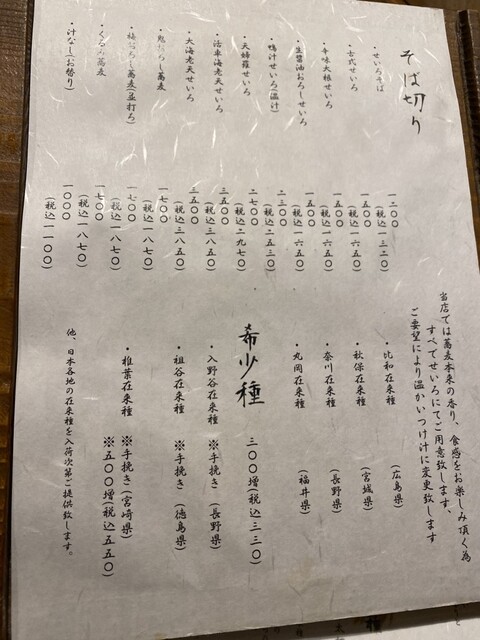 そば切り
・せいろそば 一二〇〇
(税込一三二〇)
・古式せいろ 一五〇〇
(税込一六五〇)
・辛味大根せいろ 一五〇〇
(税込一六五〇)
・生醤油おろしせいろ 一五〇〇
(税込一六五〇)
・鴨汁せいろ(温汁) 二三〇〇
(税込二五三〇)
・天婦羅せいろ 二七〇〇
(税込二九七〇)
・活車海老天せいろ 三五〇〇
(税込三八五〇)
・大海老天せいろ 三五〇〇
(税込三八五〇)
・鬼おろし蕎麦 一七〇〇
(税込一八七〇)
・梅おろし蕎麦(並打ち) 一七〇〇
(税込一八七〇)
・くるみ蕎麦 一七〇〇
(税込一八七〇)
・汁なし(お替り) 一〇〇〇
(税込一一〇〇)
当店では蕎麦本来の香り、食感をお楽しみ頂く為
すべてせいろにてご用意致します、
ご要望により温かいつけ汁に変更致します
・比和在来種 (広島県)
・秋保在来種 (宮城県)
・奈川在来種 (長野県)
・丸岡在来種 (福井県)
希少種 三〇〇増(税込三三〇)
・入野谷在来種 ※手挽き(長野県)
・祖谷在来種 ※手挽き(徳島県)
・椎葉在来種 ※手挽き(宮崎県)
※五〇〇増(税込五五〇)
他、日本各地の在来種を入荷次第ご提供致します。